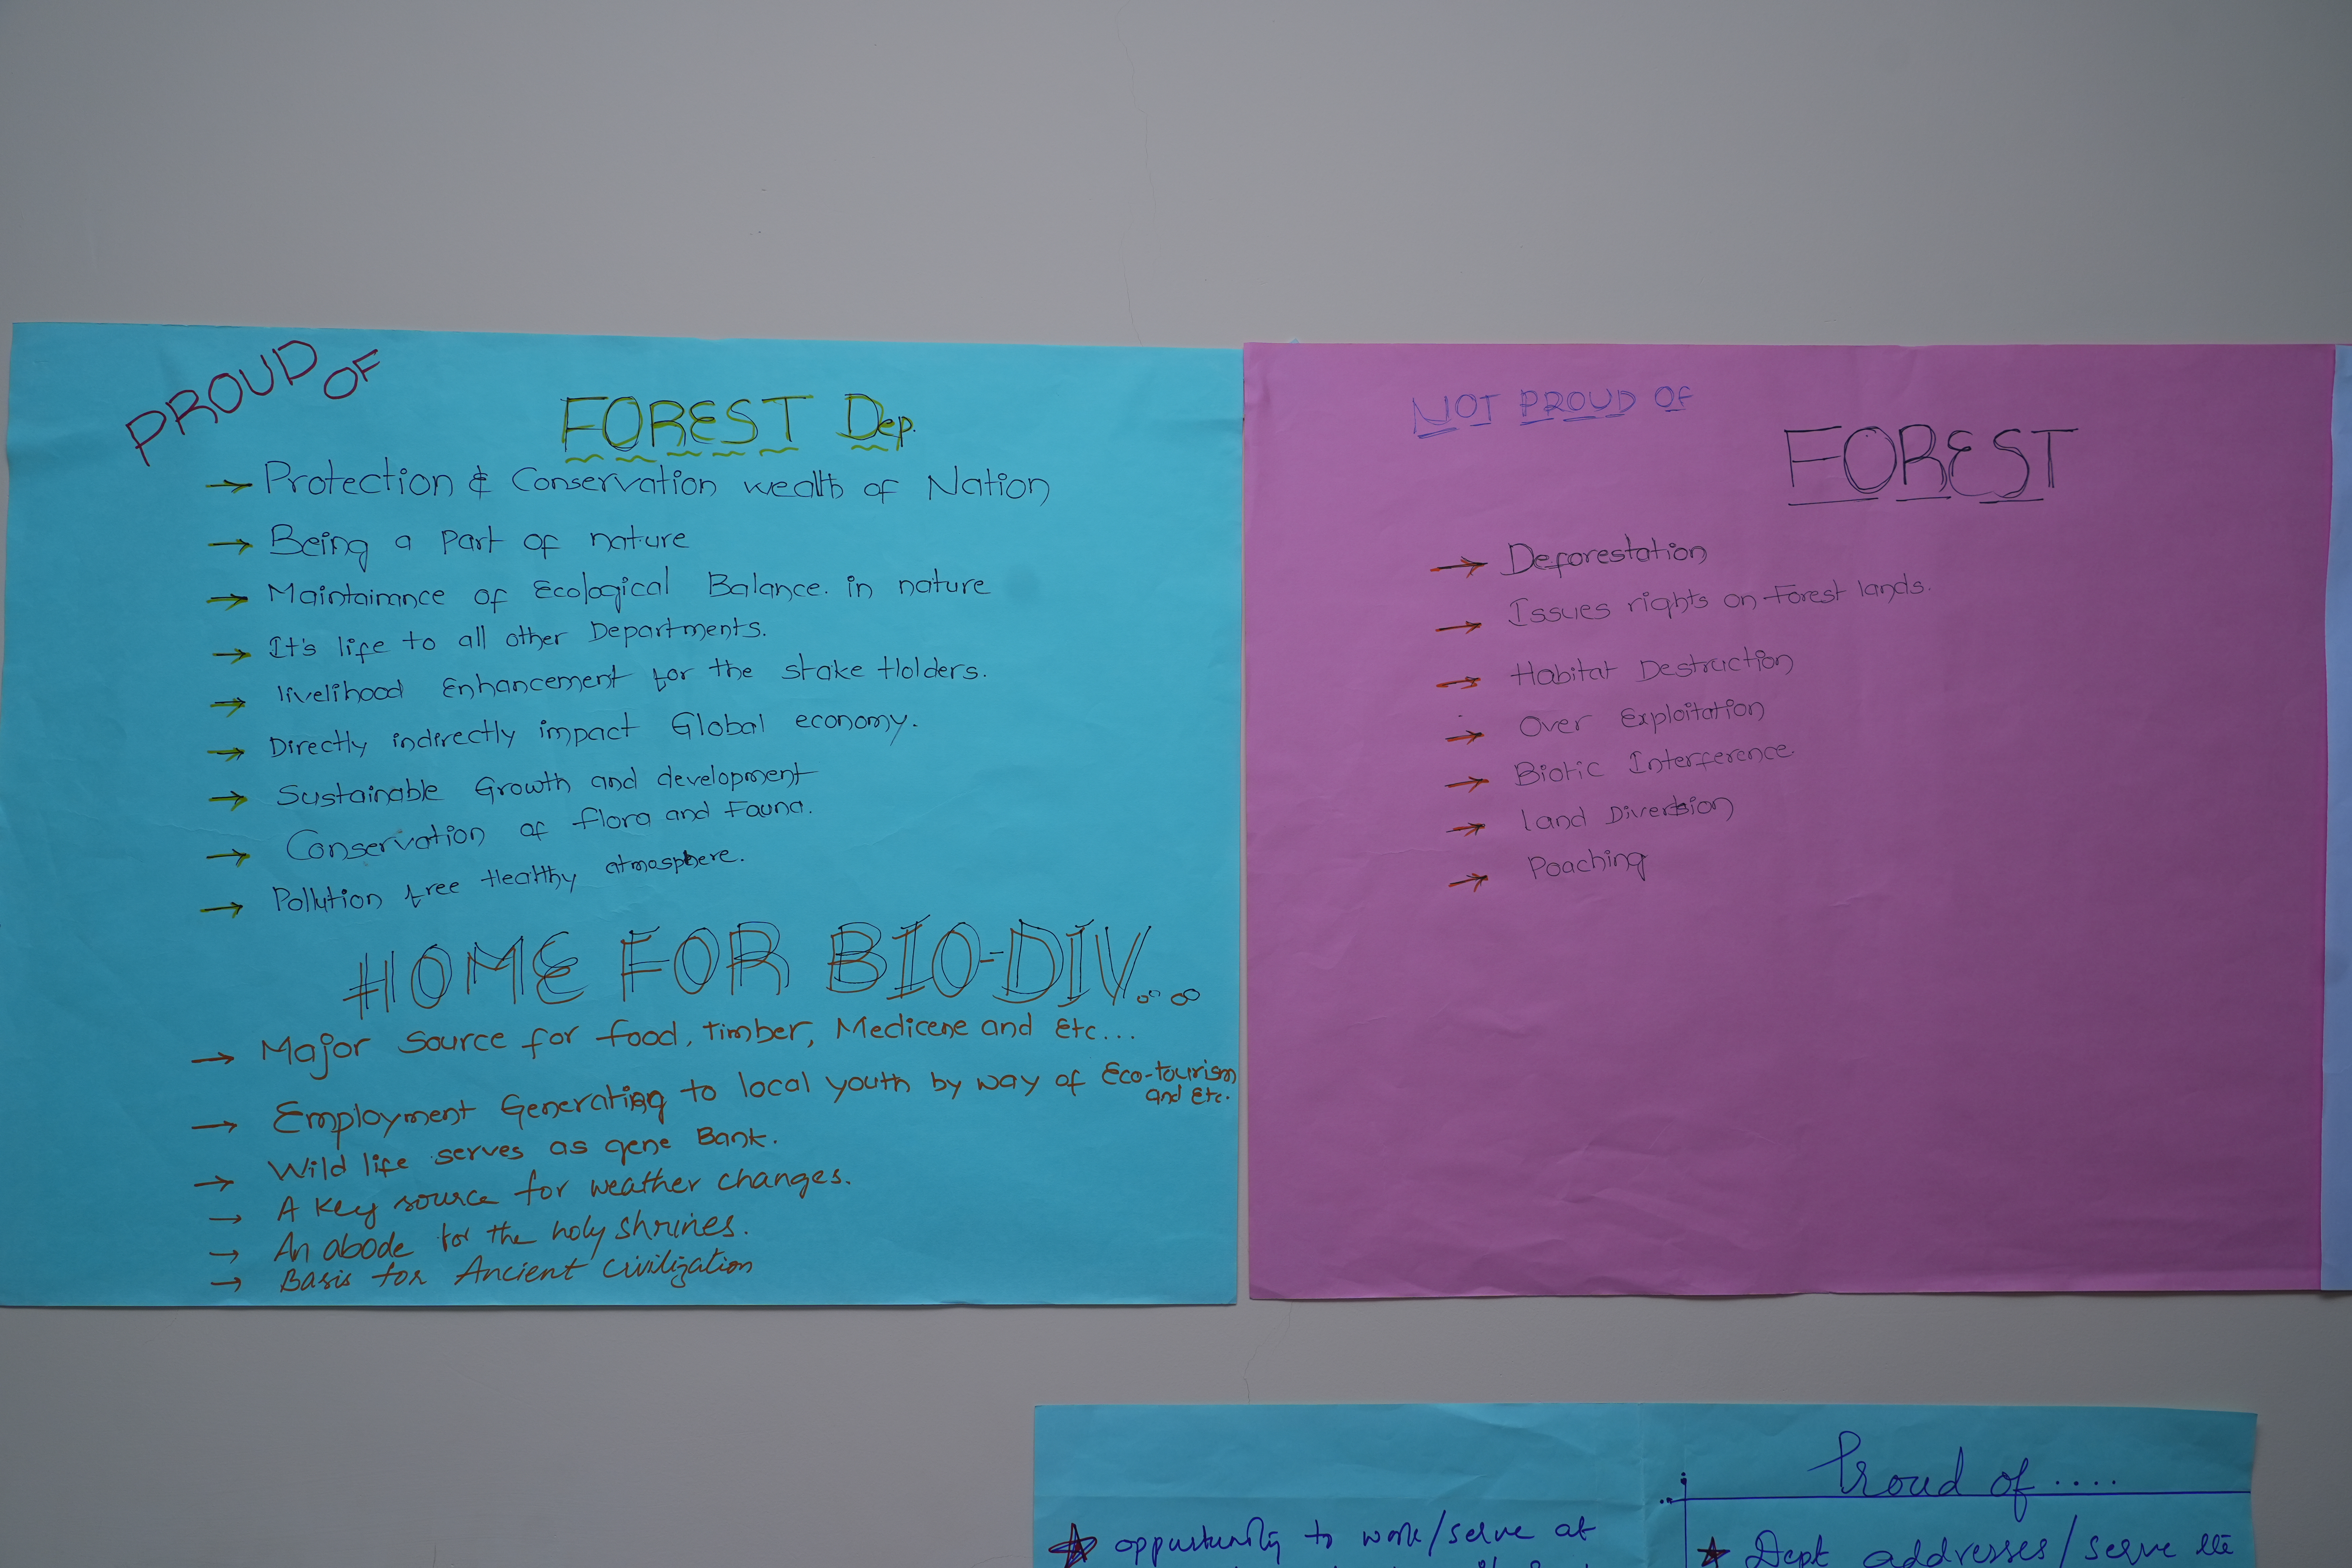 PROUD OF
FOREST Dep.
→ Protection & Conservation wealth of Nation
→ Being a part of nature
→ Maintainance of Ecological Balance. in nature
→ It's life to all other Departments.
→ livelihood Enhancement for the stake Holders.
→ Directly indirectly impact Global economy.
→ Sustainable Growth and development
→ Conservation of flora and Fauna.
→ Pollution free Healthy atmosphere.
HOME FOR BIO-DIV...
→ Major Source for food, timber, Medicene and Etc...
→ Employment Generating to local youth by way of Eco-tourism
and Etc.
→ Wild life serves as gene Bank.
→ A key source for weather changes.
→ An abode for the holy shrines.
→ Basis for Ancient civilization
NOT PROUD OF
FOREST
→ Deforestation
→ Issues rights on Forest lands.
→ Habitat Destruction
→ Over Exploitation
→ Biotic Interference
→ Land Diversion
→ Poaching
★ opportunity to work/serve at
Proud of ....
★ Dept addresses/serve the